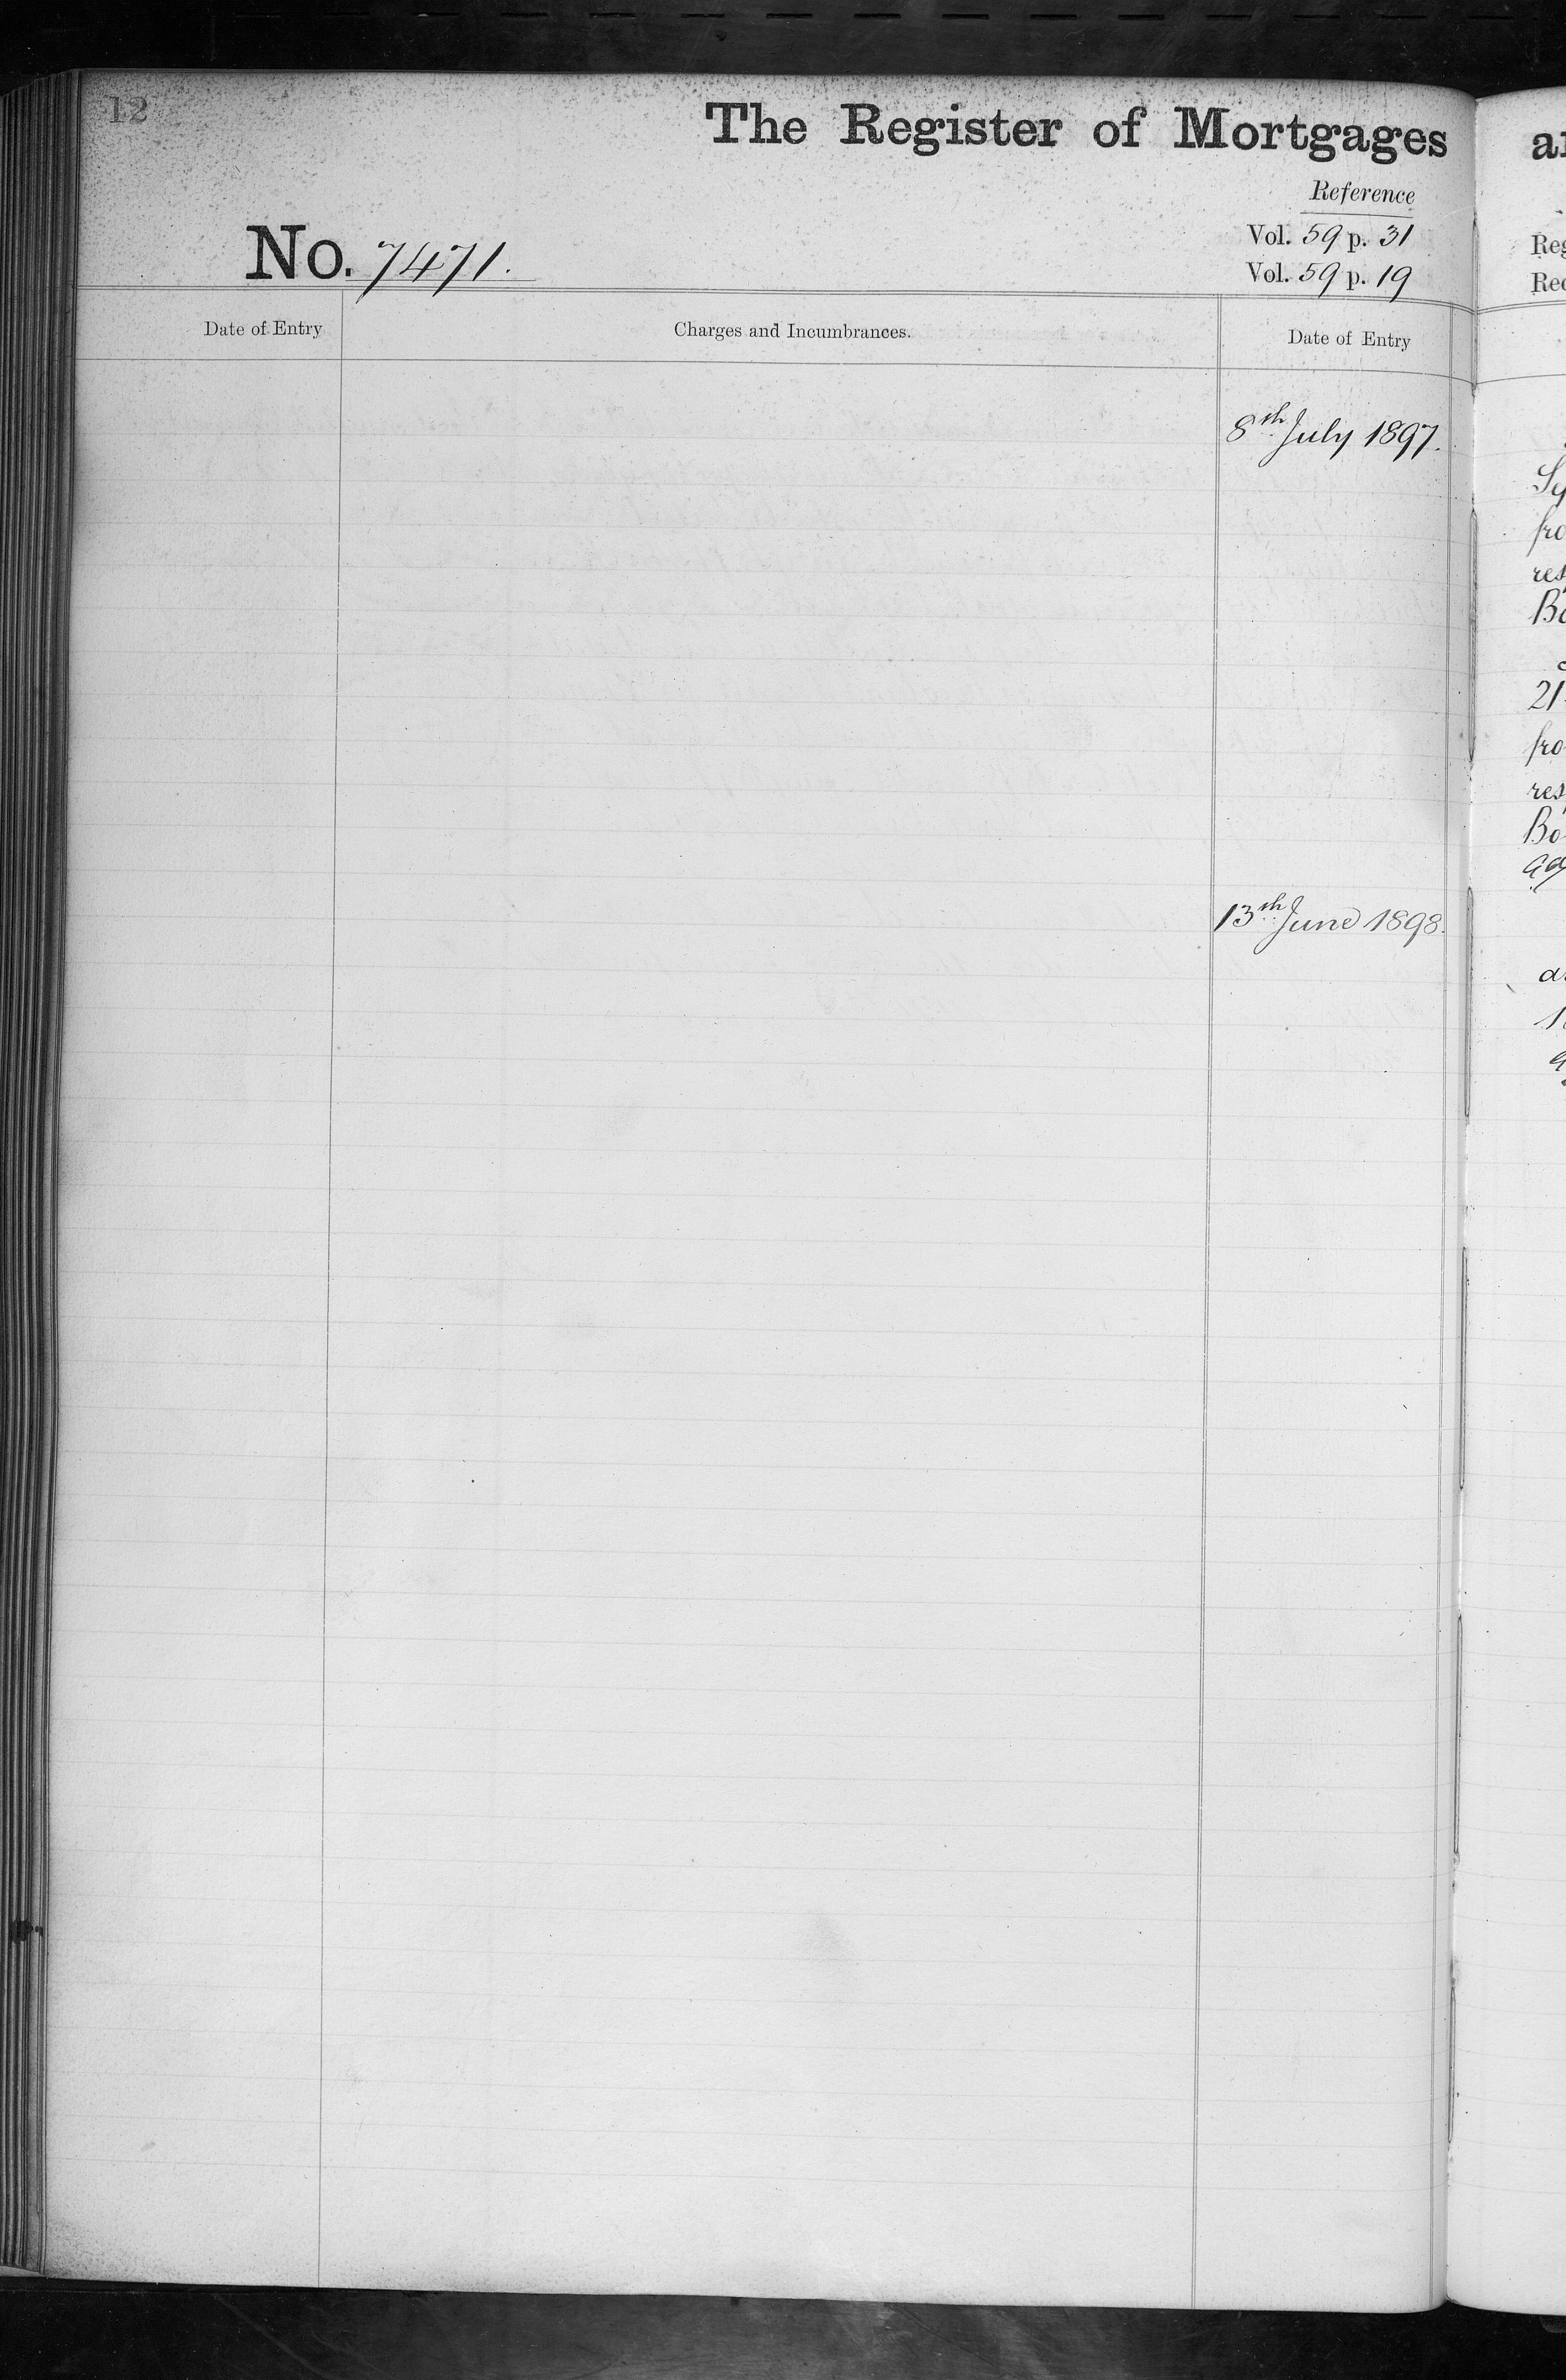 12
The Register of Mortgages
Reference
Vol. 59 p. 31
No. 7471.
Vol. 59 p. 19
Date of Entry
Charges and Incumbrances.
Date of Entry
8th July 1897.
13th June 1898.
Reg
fro
res
21
fro
res